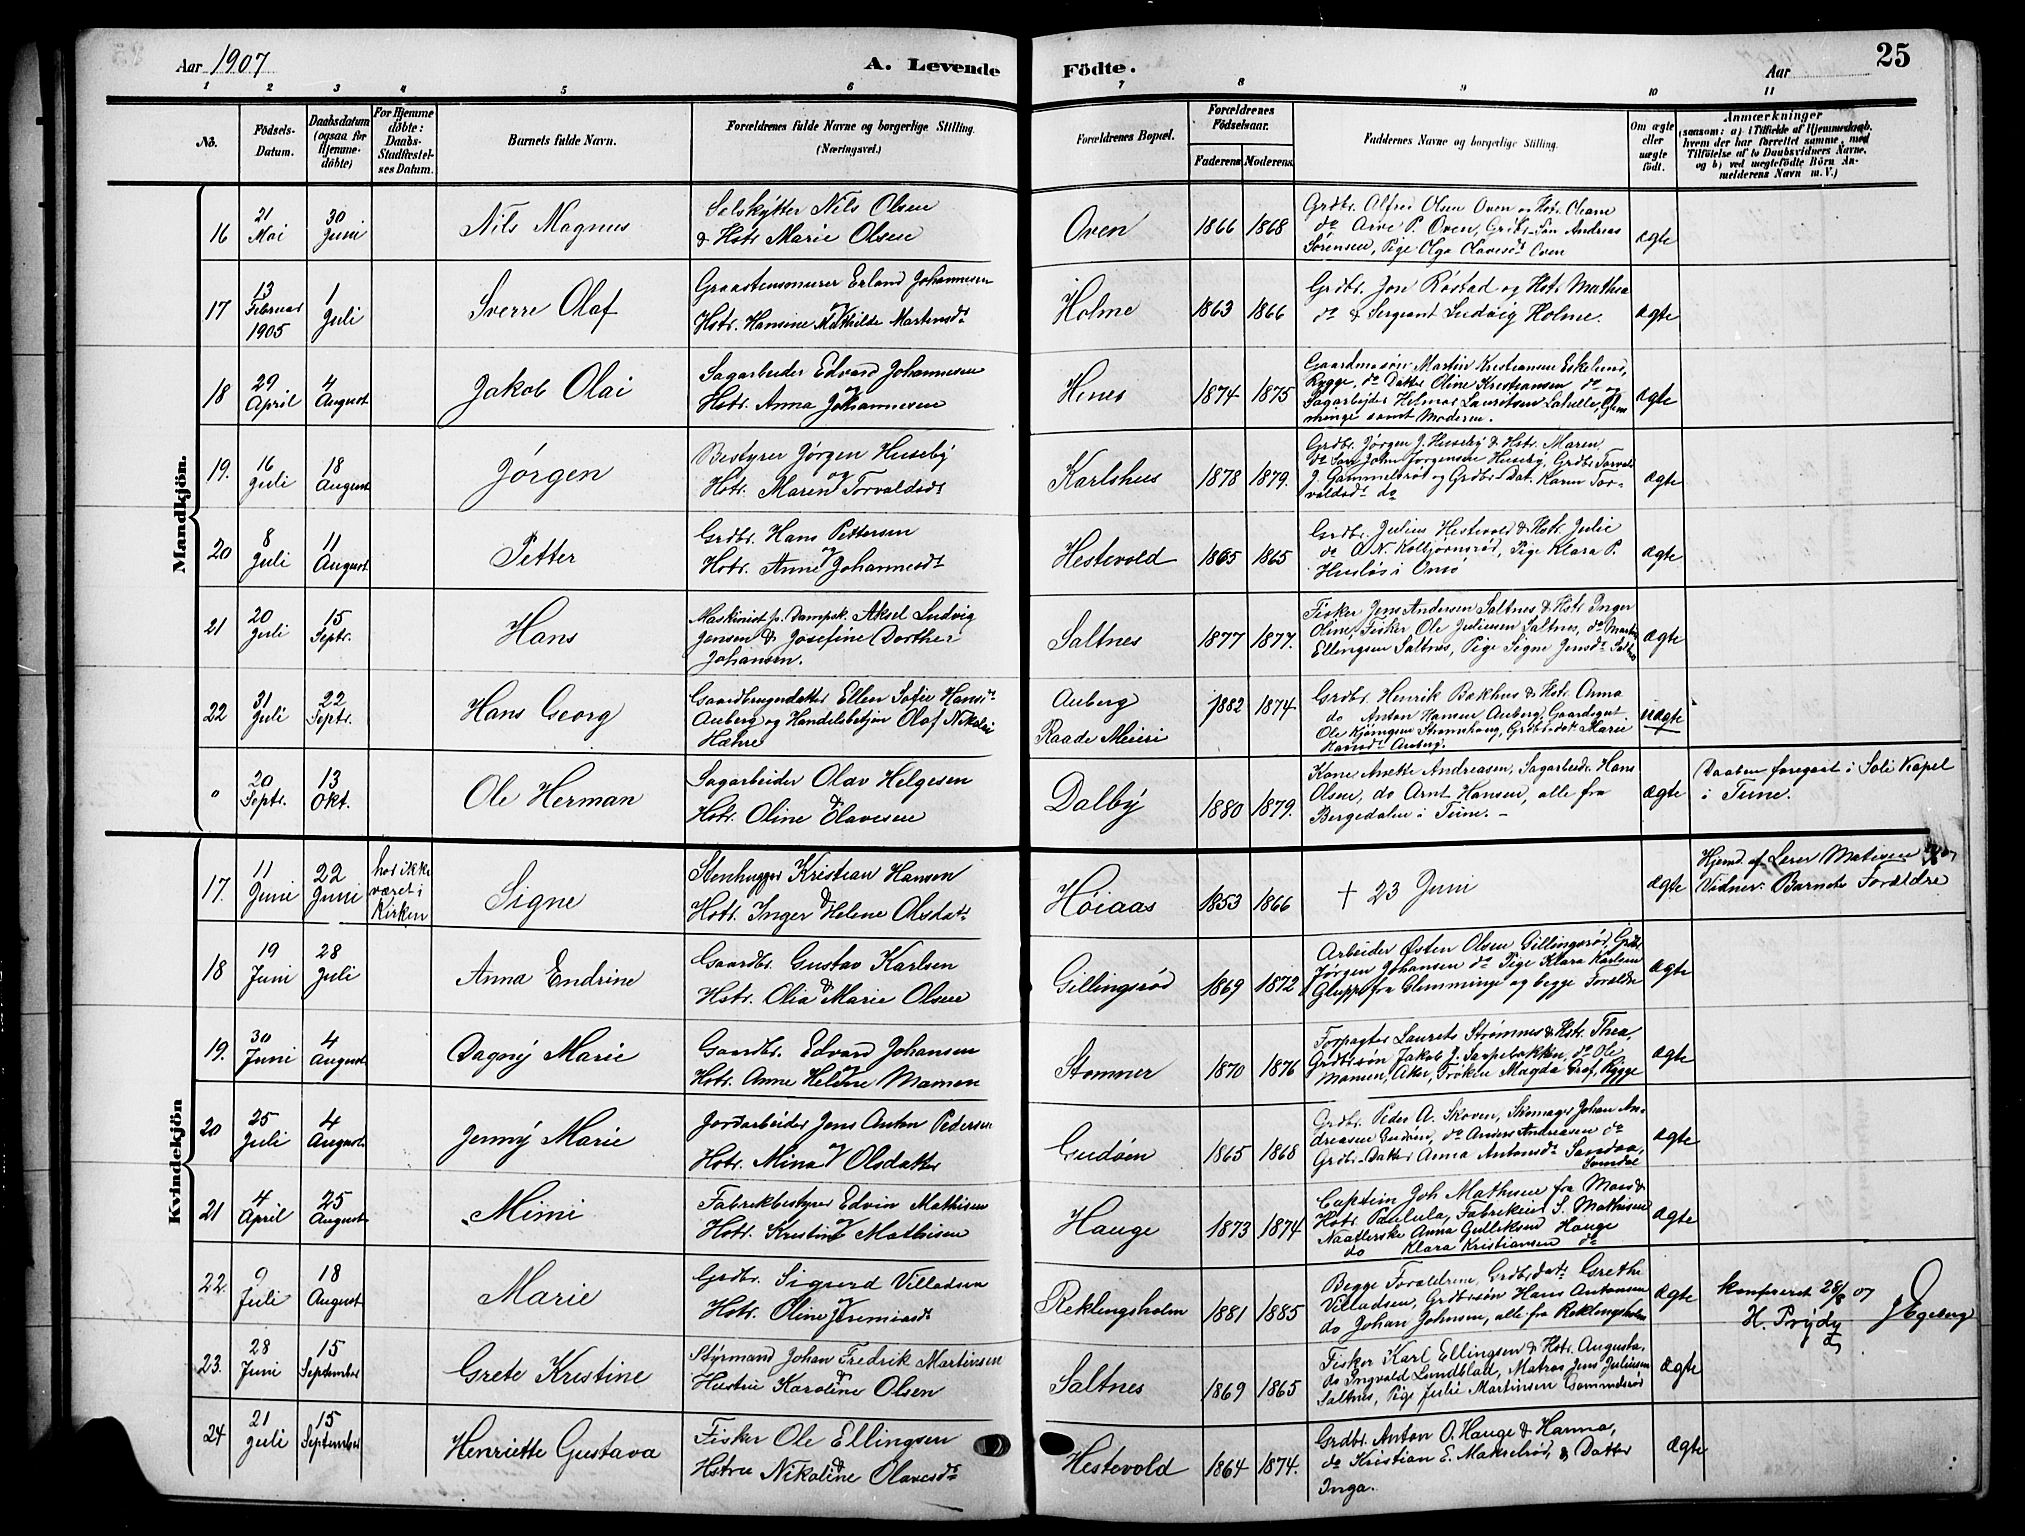 Aar 1907
A. Levende
Födte.
Aar
25
1 2 3 4 5 6 7 8 9 10 11
No.
Födsels-
Datum.
Daabsdatum
(ogsaa for
Hjemme-
döbte)
For Hjemme
döbte:
Daabs-
Stadfæstel-
ses Datum.
Barnets fulde Navn.
Forældrenes fulde Navne og borgerlige Stilling.
(Næringsvei.)
Forældrenes Bopæl.
Forældrenes
Födselsaar.
Faderens
Moderens.
Faddernes Navne og borgerlige Stilling.
Om ægte
eller
uægte
födt.
Anmærkninger
(saasom: a) i Tilfælde af Hjemmedaab,
hvem der har forrettet samme, med
Tilföielse af to Daabsvidners Navne,
og b) ved uegtefödte Börn An-
melderens Navn m. V.)
Mandkjön.
16
21 Mai
30 Juni
Nils Magnus
Selskytter Nils Olsen
& Hstr. Marie Olsen
Oven
1866 1868
Grdbr. Alfred Olsen Oven og Hstr.
do Arve P. Oven, Grdbr. Søn Andreas
Sörensen, Pige Olga Olavesdt Oven
ægte
17
13 Februar 1905
1 Juli
Sverre Olaf
Graastensmurer Erland Johannesen
og
Hstr. Hansine Mathilde Martinsdt
Holme
1863 1866
Grdbr. Jon Röstad og Hstr. Mathea
do & Sergeant Ludvig Holme.
ægte
18
29 April
4 August
Jakob Olai
Sagarbeider Edvard Johannesen
og
Hstr. Anna Johannesen
Henes
1874 1875
Gaardmasør Martin Kristiansen Eskelund,
Rygge, do Datter Oline Kristiansen do og
Sagarbejder Helmer Lauritsen Glem-
minge samt Moderen.
ægte
19.
16 Juli
18 August
Jørgen
Bestyrer Jørgen Huseby
og
Hstr. Maren Torvaldsdt
Karlshus
1878 1879.
Grdbr. Jørgen J. Huseby & Hstr. Maren
do Søn John Jørgensen Huseby, Grdbr. Torvald
J. Gammelsrød og Grdbr-Dat. Karen Tor-
valdsdt do
ægte
20
8 Juli
11 August
Petter
Grdbr. Hans Pettersen
og
Hstr. Anne Johannesdt
Hestevold
1865 1865
Grdbr. Julius Hestevold & Hstr. Julie
do A. N. Kolbjørnsrød, Pige Klara P.
Husløs i Onsö
ægte
21
20 Juli
15 Septr.
Hans
Maskinist p. Dampsk. Aksel Ludvig
Jensen & Josefine Dorthea
Johansen.
Saltnes
1877 1877.
Fisker Jens Andersen Saltnes & Hstr. Inger
Oline, Fisker Ole Juliusen Saltnes, do Martin
Ellingsen Saltnes, Pige Signe Jensdt Saltnes
ægte
22
31 Juli
22 Septr.
Hans Georg
Gaardbrugerdatter Ellen Sofie Hansdt
Auberg og Handelsbetjen Olaf Nikolai
Hæhre
Auberg
Raade Meieri
1882 1874
Grdbr. Henrik Bækhus & Hstr. Anna
do Anton Hansen Auberg, Gaardsgut
Ole Kjöniksen Strømhaug, Grdbrdat Marie
Hansdt Auberg.
uægte
"
20 Septr.
13 Okt.
Ole Herman
Sagarbeider Olav Helgesen
&
Hstr. Oline Olavesen
Dalby
1880 1879.
Kone Anette Andreasen, Sagarbeidr. Hans
Olsen, do Arnt Hansen, alle fra
Bergedalen i Tune. –
ægte
Daaben foregaat i Soli Kapel
i Tune.
Kvindekjön
17.
11 Juni
22 Juni
har ikke
været i
Kirken
Signe
Stenhugger Kristian Hansen
&
Hstr. Inger Helene Olsdat
Høiaas
1853 1866
† 23 Juni
ægte
Hjemd. af Lærer Matisen
Vidner: Barnets Forældre
18
19 Juni
28 Juli
Anna Endrine
Gaardbr. Gustav Karlsen
&
Hstr. Olia Marie Olsen
Gillingsrød
1869 1872
Arbeider Østen Olsen Gillingsrød, Grdbr.
Jørgen Johansen do Pige Klara Karlsen
Gluppe fra Glemminge og begge Foraldre
ægte
19.
30 Juni
4 August
Dagny Marie
Gaardbr. Edvard Johansen
og
Hstr. Anne Helene Mamen
Stomner
1870 1876
Forpagter Laurets Strømnes & Hstr. Thea,
Grdbrsøn Jakob J. Sarpebakken, do Ole
Mamen, Aker, Frøken Magda Graf, Rygge
ægte
20
25 Juli
4 August
Jenny Marie
Jordarbeider Jens Anton Pedersen
og
Hstr. Mina Olsdatter
Gudøen
1865 1868
Grdbr. Peder A. Skoven, Skomager Johan An-
dreasen Gudøen, do Anders Andreasen do
Grdbr-Datter Anna Antonsdt Sandaa,
Somdal
ægte
21
4 April
25 August
Mimi
Fabrikbestyrer Edvin Mathisen
og
Hstr. Kristine Mathisen
Hauge
1873 1874
Captein Joh Mathisen fra Moss &
Hstr. Paulula, Fabrikeier S. Mathisen
Naatlerske Anna Gulliksen Hauge
do Klara Kristiansen do
ægte
22.
9 Juli
18 August
Marie
Grdbr. Sigurd Villadsen
og
Hstr. Oline Jeremiasdt
Reklingsholm
1881 1885
Begge Foraldrene, Grdbrdatr Grethe
Villadsen, Grdbrsøn Hans Antonsen
do Johan Johnsen, alle fra Reklingsholm
ægte
konfereret 28/8 07
H. Prydz
J Egeberg
23.
28 Juni
15 September
Grete Kristine
Styrmand Johan Fredrik Martinsen
&
Hustru Karoline Olsen
Saltnes
1869 1865
Fisker Karl Ellingsen & Hstr. Augusta,
do Ingvald Lundblad, Matros Jens Juliusen
Saltnes, Pige Julie Martinsen
ægte
24
21 Juli
15 September
Henriette Gustava
Fisker Ole Ellingsen
&
Hstru Nikoline Olavesdt
Hestevold
1864 1874.
Grdbr. Anton O. Hauge & Hanna,
do Kristian E. Makselrød, & Datter
Inga.
ægte